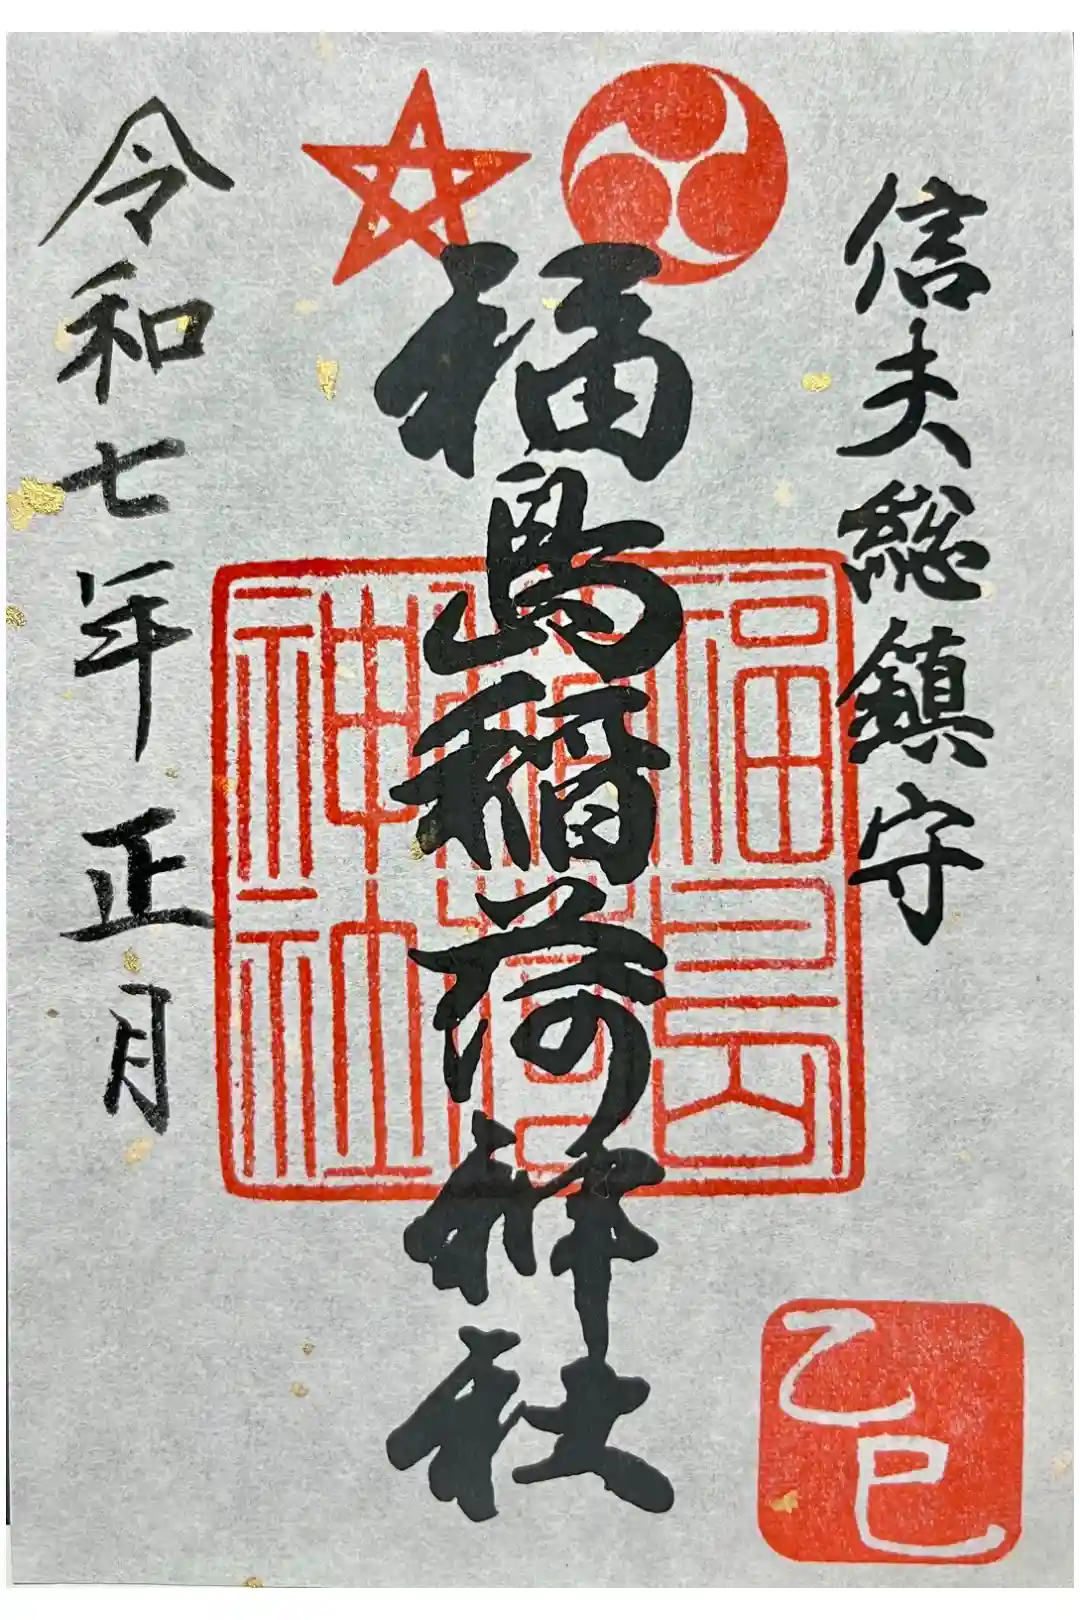 信夫総鎮守
福島稲荷神社
令和七年正月
福島
稲荷
神社
乙巳